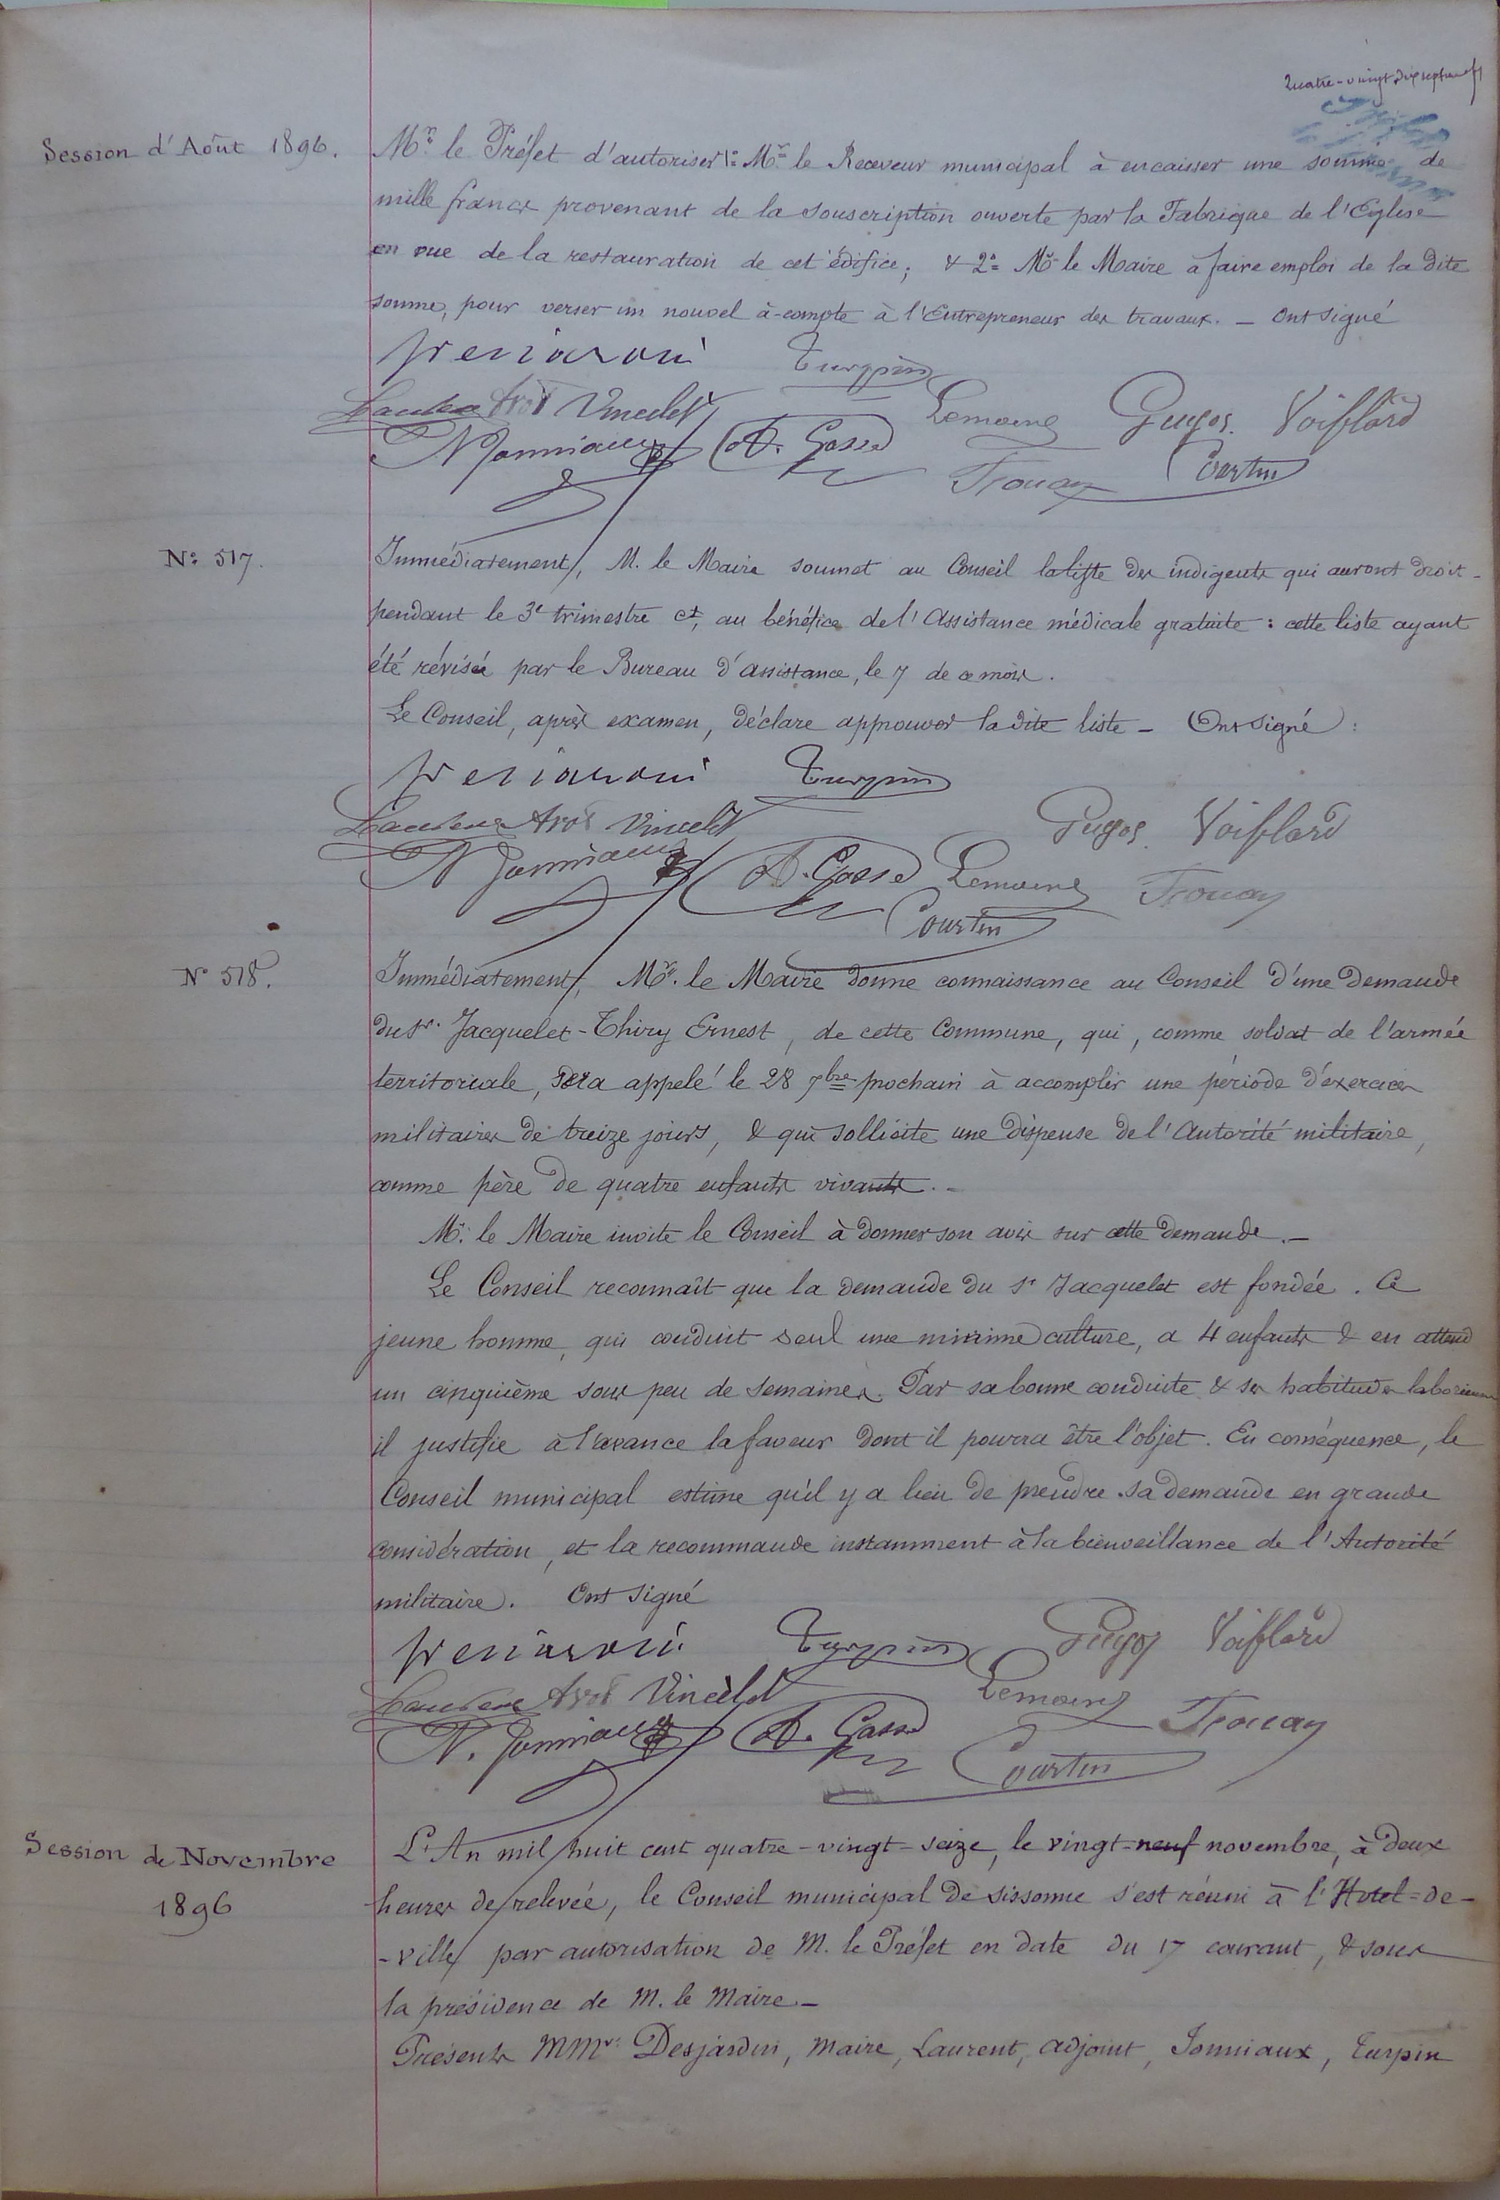 Quatre-vingt-dix-sept
Session d'Août 1896.
Mr le Préfet d'autoriser 1º Mr le Receveur municipal à encaisser une somme de
mille francs provenant de la souscription ouverte par la Fabrique de l'Eglise
en vue de la restauration de cet édifice, & 2º Mr le Maire à faire emploi de la dite
somme, pour verser un nouvel à-compte à l'Entrepreneur des travaux. — Ont signé
Turpin
Vincelet
Lemoine Guyos. Voiflard
N Jonniaux A. Gosse
Trouay Courtin
Nº 517.
Immédiatement, M. le Maire soumet au Conseil la liste des indigents qui auront droit
pendant le 3e trimestre ct, au bénéfice de l'Assistance médicale gratuite : cette liste ayant
été révisée par le Bureau d'assistance, le 7 de ce mois.
Le Conseil, après examen, déclare approuver la dite liste — Ont signé :
Turpin
Vincelet
Guyos. Voiflard
N Jonniaux A. Gosse Lemoine Trouay
Courtin
Nº 518.
Immédiatement, Mr. le Maire donne connaissance au Conseil d'une demande
du Sr. Jacquelet-Thiry Ernest, de cette Commune, qui, comme soldat de l'armée
territoriale, sera appelé le 28 7bre prochain à accomplir une période d'exercices
militaires de treize jours, & qui sollicite une dispense de l'autorité militaire,
comme père de quatre enfants vivants. —
Mr. le Maire invite le Conseil à donner son avis sur cette demande. —
Le Conseil reconnaît que la demande du Sr Jacquelet est fondée. Ce
jeune homme, qui conduit seul une minime culture, a 4 enfants & en attend
un cinquième sous peu de semaines. Par sa bonne conduite & ses habitudes laborieuses
il justifie à l'avance la faveur dont il pourra être l'objet. En conséquence, le
Conseil municipal estime qu'il y a lieu de prendre sa demande en grande
considération, et la recommande instamment à la bienveillance de l'Autorité
militaire. Ont signé
Turpin Guyos Voiflard
Vincelet Lemoine
N. Jonniaux A. Gosse Trouay
Courtin
Session de Novembre
1896
L'An mil huit cent quatre-vingt-seize, le vingt-neuf novembre, à deux
heures de relevée, le Conseil municipal de Sissonne s'est réuni à l'Hotel-de-
-ville, par autorisation de M. le Préfet en date du 17 courant, & sous
la présidence de M. le Maire. —
Présents MMrs Desjardin, Maire, Laurent, adjoint, Jonniaux, Turpin